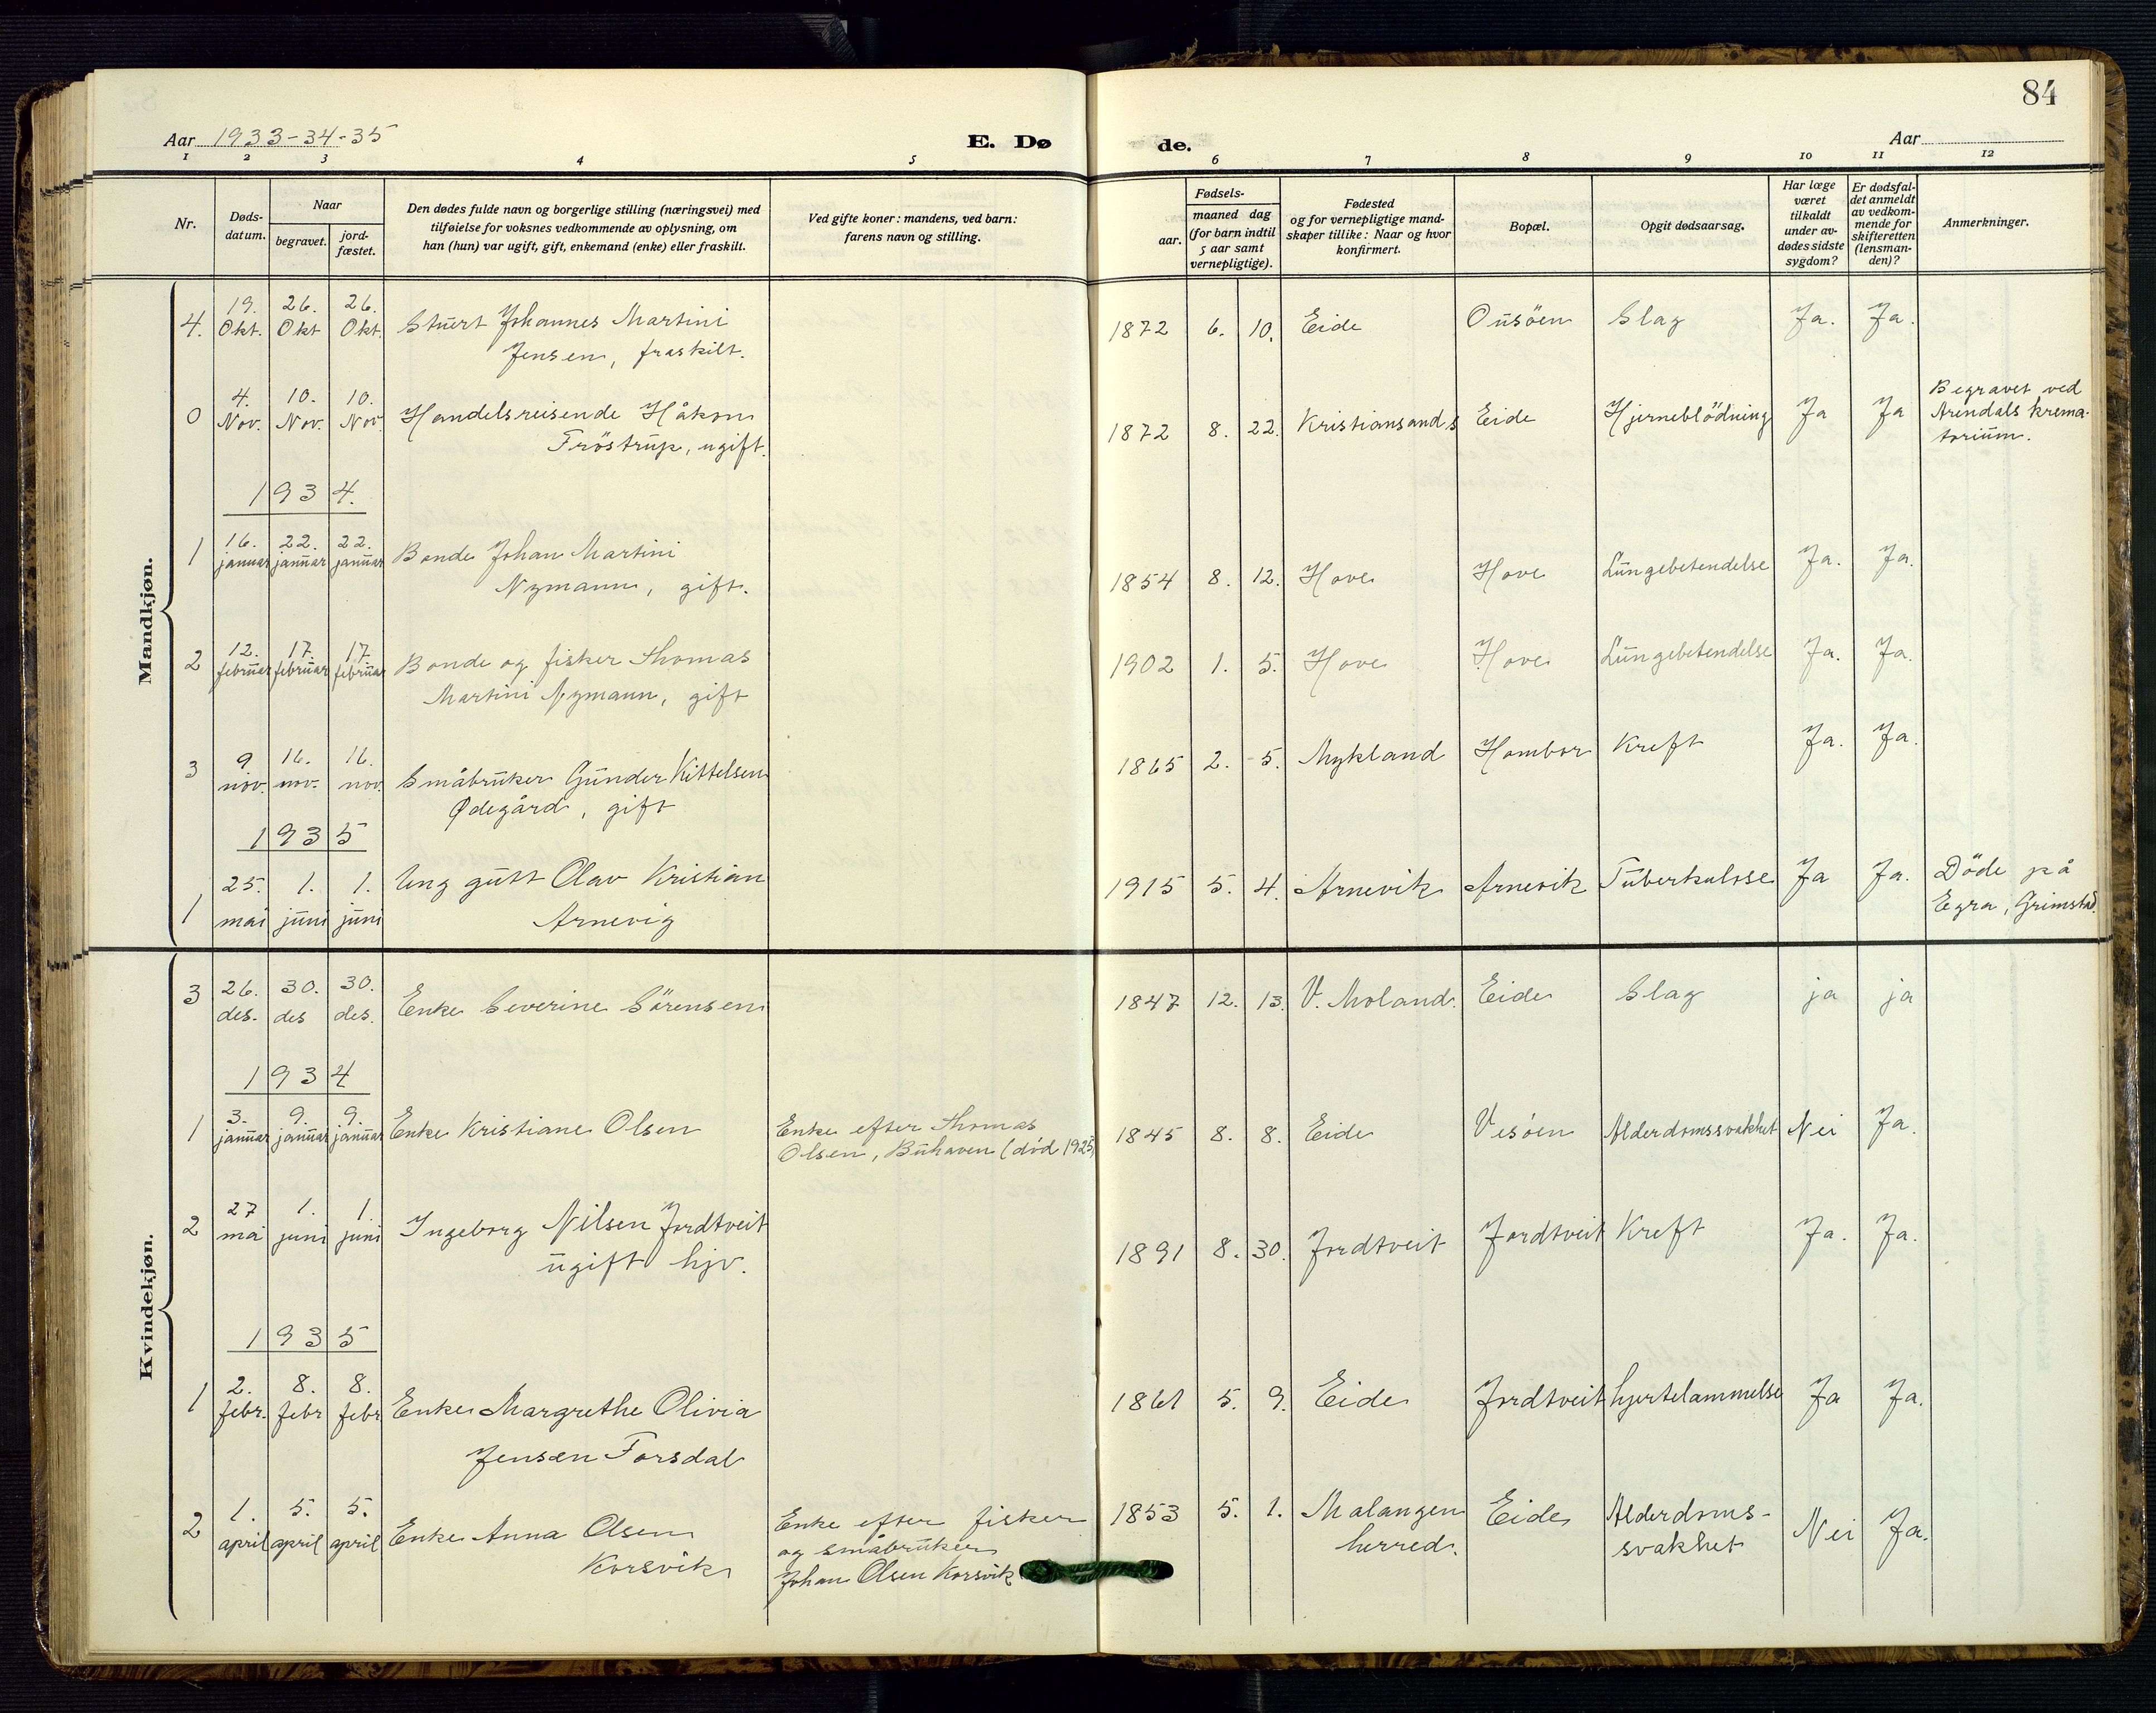 84
Aar 1933-34-35
E. Dø
de.
Aar
1 2 3 4 5 6 7 8 9 10 11 12
Nr.
Døds-
datum.
Naar
begravet.
jord-
fæstet.
Den dødes fulde navn og borgerlige stilling (næringsvei) med
tilføielse for voksnes vedkommende av oplysning, om
han (hun) var ugift, gift, enkemand (enke) eller fraskilt.
Ved gifte koner: mandens, ved barn:
farens navn og stilling.
Fødsels-
aar.
maaned dag
(for barn indtil
5 aar samt
vernepligtige).
Fødested
og for vernepligtige mand-
skaper tillike: Naar og hvor
konfirmert.
Bopæl.
Opgit dødsaarsag.
Har læge
været
tilkaldt
under av-
dødes sidste
sygdom?
Er dødsfal-
det anmeldt
av vedkom-
mende for
skifteretten
(lensman-
den)?
Anmerkninger.
Mandkjøn.
4. 19. Okt. 26. Okt 26. Okt. Stuert Johannes Martini
Jensen, fraskilt.
1872 6. 10. Eide Ousöen Slag Ja. Ja.
0 4. Nov. 10. Nov. 10. Nov. Handelsreisende Håkon
Fröstrup, ugift.
1872 8. 22. Kristiansands Eide Hjerneblödning Ja Ja
Begravet ved
Arendals krema-
torium.
1934.
1 16. januar 22. januar 22. januar Bonde Johan Martini
Nymann, gift.
1854 8. 12. Hove Hove Lungebetendelse Ja. Ja.
2 12. februar 17. februar 17. februar Bonde og fisker Thomas
Martini Nymann, gift
1902 1. 5. Hove Hove Lungebetendelse Ja. Ja.
3 9 nov. 16. nov. 16. nov. Småbruker Gunder Kittelsen
Ødegård, gift
1865 2. 5. Mykland Hombor Kreft Ja. Ja.
1935
1 25. mai 1. juni 1. juni Ung gutt Olav Kristian
Arnevig
1915 5. 4. Arnevik Arnevik Tuberkulose Ja Ja.
Döde på
Egra, Grimstad.
Kvindekjøn.
3 26. des. 30. des 30. des. Enke Severine Sörensen
1847 12. 13. V. Moland. Eide Slag ja ja
1934
1 3. januar 9. januar 9. januar Enke Kristiane Olsen
Enke efter Thomas
Olsen, Buhaven (död 1925)
1845 8. 8. Eide Vesöen Alderdomssvakhet Nei Ja.
2 27 mai 1. juni 1. juni Ingeborg Nilsen Jordtveit
ugift hjv.
1891 8. 30. Jordtveit Jordtveit Kreft Ja. Ja.
1935
1 2. febr. 8. febr 8. febr Enke Margrethe Olivia
Jensen Forsdal
1861 5. 9. Eide Jordtveit hjertelammelse Ja Ja.
2 1. april 5. april 5. april Enke Anna Olsen
Korsvik
Enke efter fisker
og småbruker
Johan Olsen Korsvik
1853 5. 1. Malangen
herred.
Eide Alderdoms-
svakhet
Nei Ja.